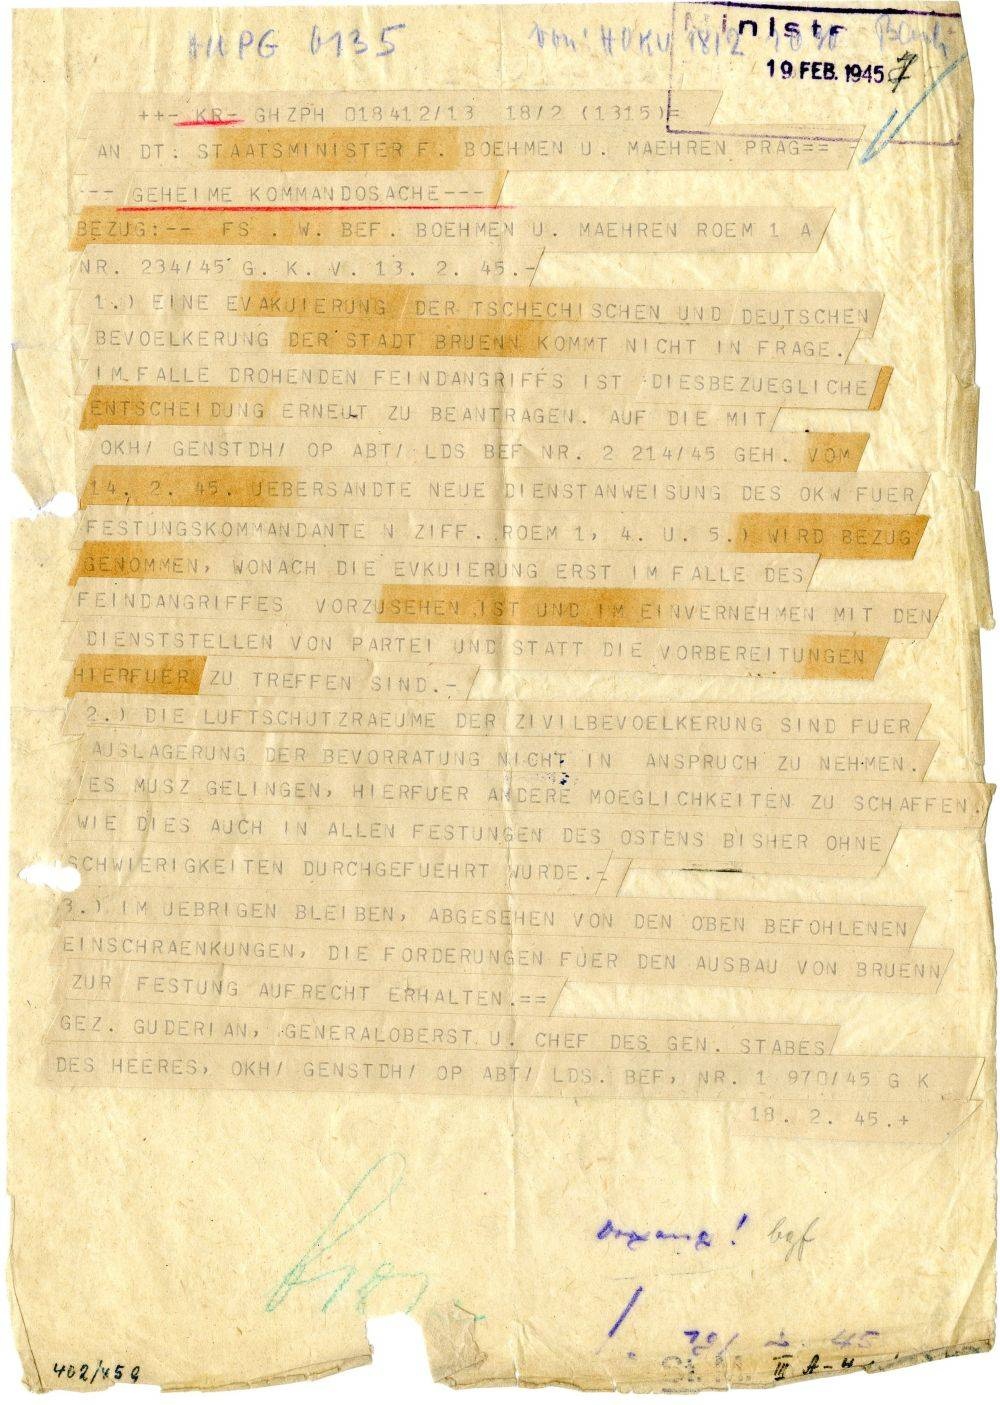 HUPG 0135 von: HOKW 18/2 1030
Ministr
19 FEB. 1945
++- KR- GHZPH 018412/13 18/2 (1315)=
AN DT: STAATSMINISTER F. BOEHMEN U. MAEHREN PRAG== =
--- GEHEIME KOMMANDOSACHE---
BEZUG:-- FS . W. BEF. BOEHMEN U. MAEHREN ROEM 1 A
NR. 234/45 G. K. V. 13. 2. 45.-
1.) EINE EVAKUIERUNG DER TSCHECHISCHEN UND DEUTSCHEN
BEVOELKERUNG DER STADT BRUENN KOMMT NICHT IN FRAGE.
IM FALLE DROHENDEN FEINDANGRIFFS IST DIESBEZUEGLICHE
ENTSCHEIDUNG ERNEUT ZU BEANTRAGEN. AUF DIE MIT
OKH/ GENSTDH/ OP ABT/ LDS BEF NR. 2 214/45 GEH. VOM
14. 2. 45. UEBERSANDTE NEUE DIENSTANWEISUNG DES OKW FUER
FESTUNGSKOMMANDANTE N ZIFF. ROEM 1, 4. U. 5.) WIRD BEZUG
GENOMMEN, WONACH DIE EVKUIERUNG ERST IM FALLE DES
FEINDANGRIFFES VORZUSEHEN IST UND IM EINVERNEHMEN MIT DEN
DIENSTSTELLEN VON PARTEI UND STATT DIE VORBEREITUNGEN
HIERFUER ZU TREFFEN SIND.-
2.) DIE LUFTSCHUTZRAEUME DER ZIVILBEVOELKERUNG SIND FUER
AUSLAGERUNG DER BEVORRATUNG NICHT IN ANSPRUCH ZU NEHMEN.
ES MUSZ GELINGEN, HIERFUER ANDERE MOEGLICHKEITEN ZU SCHAFFEN.
WIE DIES AUCH IN ALLEN FESTUNGEN DES OSTENS BISHER OHNE
SCHWIERIGKEITEN DURCHGEFUEHRT WURDE.-
3.) IM UEBRIGEN BLEIBEN, ABGESEHEN VON DEN OBEN BEFOHLENEN
EINSCHRAENKUNGEN, DIE FORDERUNGEN FUER DEN AUSBAU VON BRUENN
ZUR FESTUNG AUFRECHT ERHALTEN.==
GEZ. GUDERIAN, GENERALOBERST U. CHEF DES GEN. STABES
DES HEERES, OKH/ GENSTDH/ OP ABT/ LDS. BEF, NR. 1 970/45 G K
18. 2. 45.+
Vorgang!
! 20/ 2. 45
St. M. III A-4
402/45g